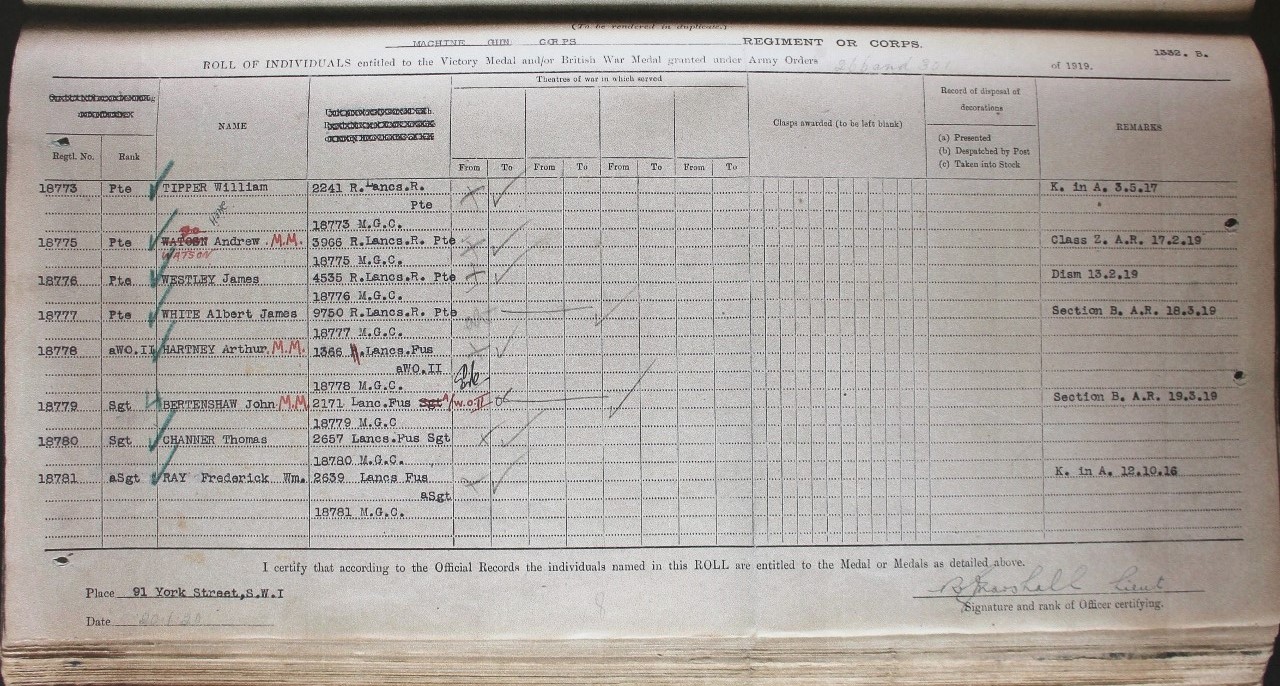 (To be rendered in duplicate.)
MACHINE GUN CORPS REGIMENT OR CORPS.
1332. B.
ROLL OF INDIVIDUALS entitled to the Victory Medal and/or British War Medal granted under Army Orders 266 and 301 of 1919.
Theatres of war in which served
Record of disposal of decorations
NAME
Clasps awarded (to be left blank)
(a) Presented
(b) Despatched by Post
(c) Taken into Stock
REMARKS
Regtl. No. Rank
From To From To From To From To
18773 Pte TIPPER William 2241 R.Lancs.R. K. in A. 3.5.17
Pte
18773 M.G.C.
18775 Pte WATOSN Andrew M.M. 3966 R.Lancs.R. Pte Class Z. A.R. 17.2.19
WATSON 18775 M.G.C.
18776 Pte WESTLEY James 4535 R.Lancs.R. Pte Dism 13.2.19
18776 M.G.C.
18777 Pte WHITE Albert James 9750 R.Lancs.R. Pte Section B. A.R. 18.3.19
18777 M.G.C.
18778 aWO.II HARTNEY Arthur M.M. 1366 .Lancs.Fus
aWO.II
18778 M.G.C.
18779 Sgt BERTENSHAW John M.M 2171 Lanc.Fus Sgt A/W.O.II Section B. A.R. 19.3.19
18779 M.G.C
18780 Sgt CHANNER Thomas 2657 Lancs.Fus Sgt
18780 M.G.C.
18781 aSgt RAY Frederick Wm. 2639 Lancs Fus K. in A. 12.10.16
aSgt
18781 M.G.C.
I certify that according to the Official Records the individuals named in this ROLL are entitled to the Medal or Medals as detailed above.
Place 91 York Street,S.W.I
Marshall Lieut
Signature and rank of Officer certifying.
Date